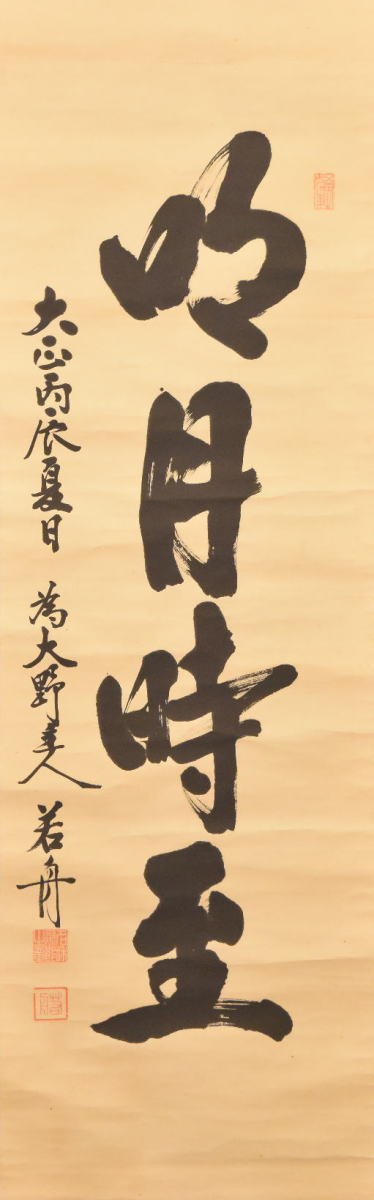 明月時至
大正丙辰夏日 為大野季人 若舟